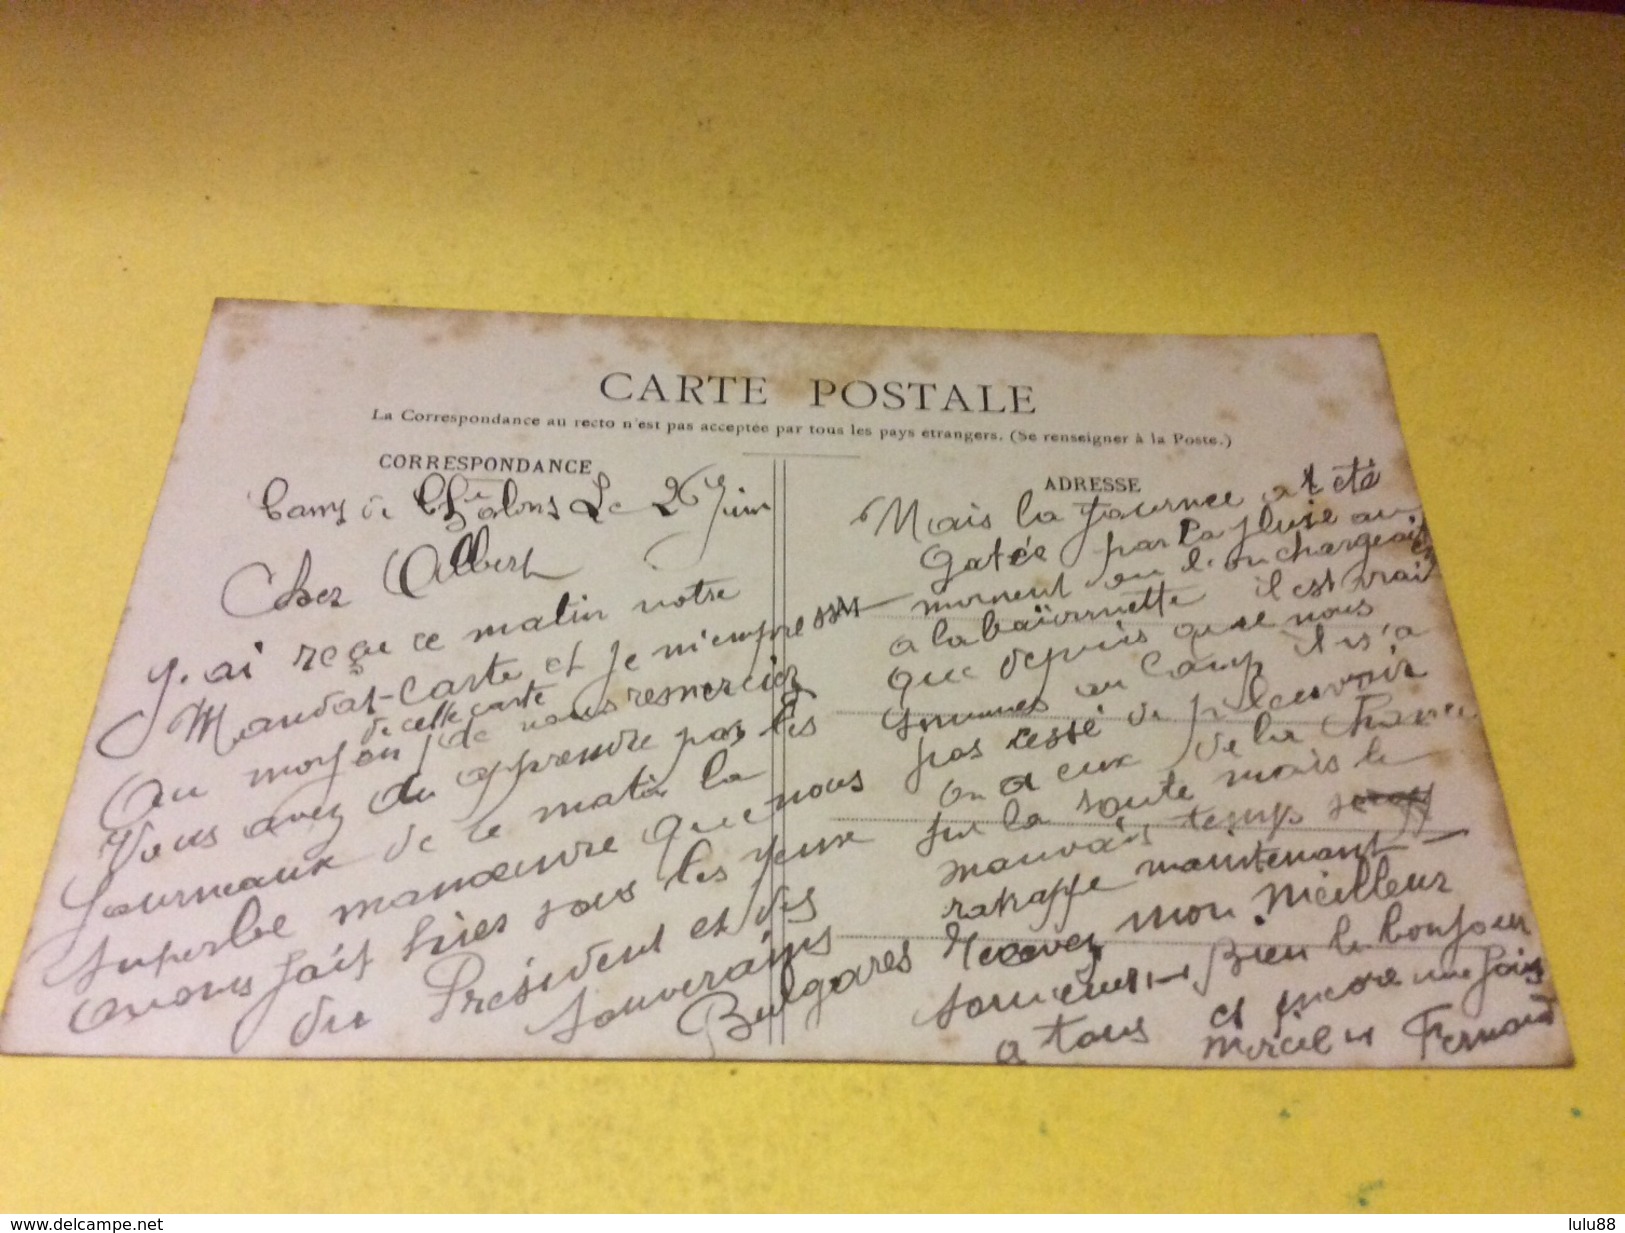 CARTE POSTALE
La Correspondance au recto n'est pas acceptée par tous les pays etrangers. (Se renseigner à la Poste.)
CORRESPONDANCE
Camp de Châlons Le 26 Juin
Cher Albert
J'ai reçu ce matin votre
Mandat-Carte et je m'empresse
de cette carte
au moyen de vous remercier
Vous avez du apprendre par les
Journaux de ce matin la
superbe manœuvre que nous
avons fait hier sous les yeux
du Président et des
souverains
Bulgares
ADRESSE
Mais la journee a été
Gatée par la pluie au
moment ou l'on chargeait
a la baïonnette il est vrai
que depuis que nous
sommes au camp il n'a
pas cessé de pleuvoir
on a eux de la chance
sur la route mais le
mauvais temps se
rattrape maintenant
Recevez mon meilleur
souvenir Bien le bonjour
a tous et encore une fois
merci Fernand
www.delcampe.net
lulu88